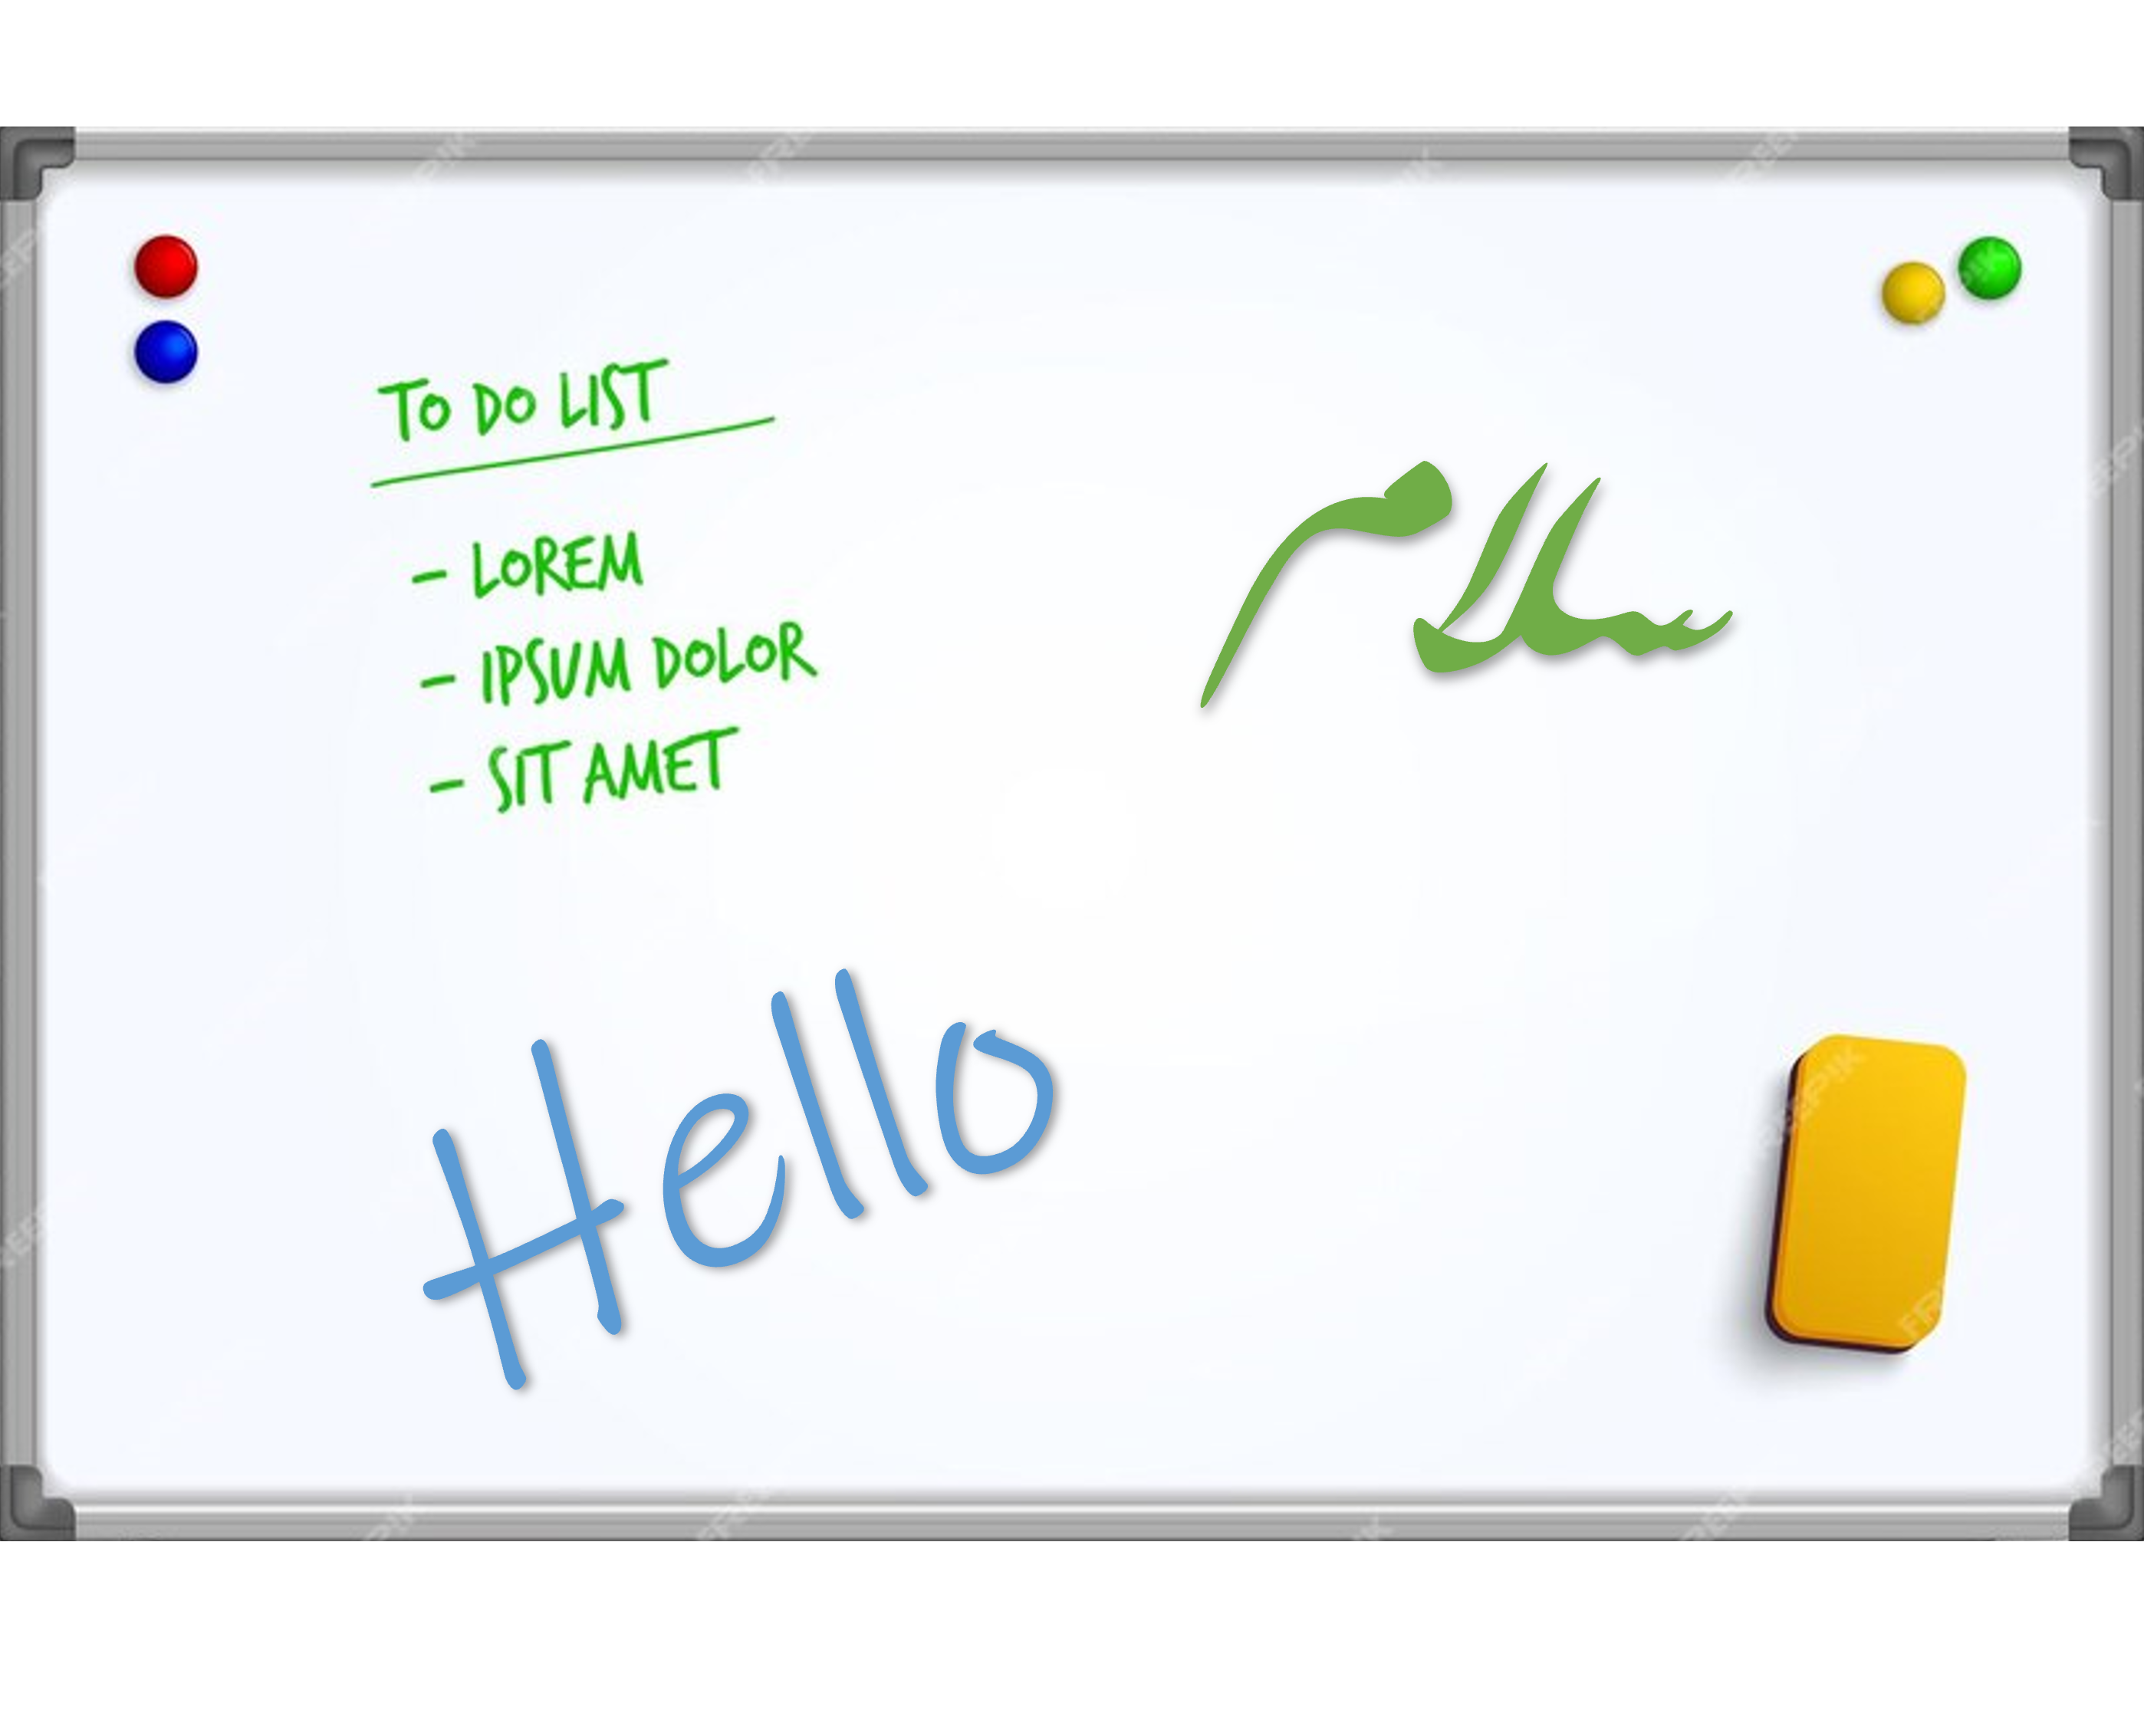 TO DO LIST
- LOREM
- IPSUM DOLOR
- SIT AMET
سلام
Hello